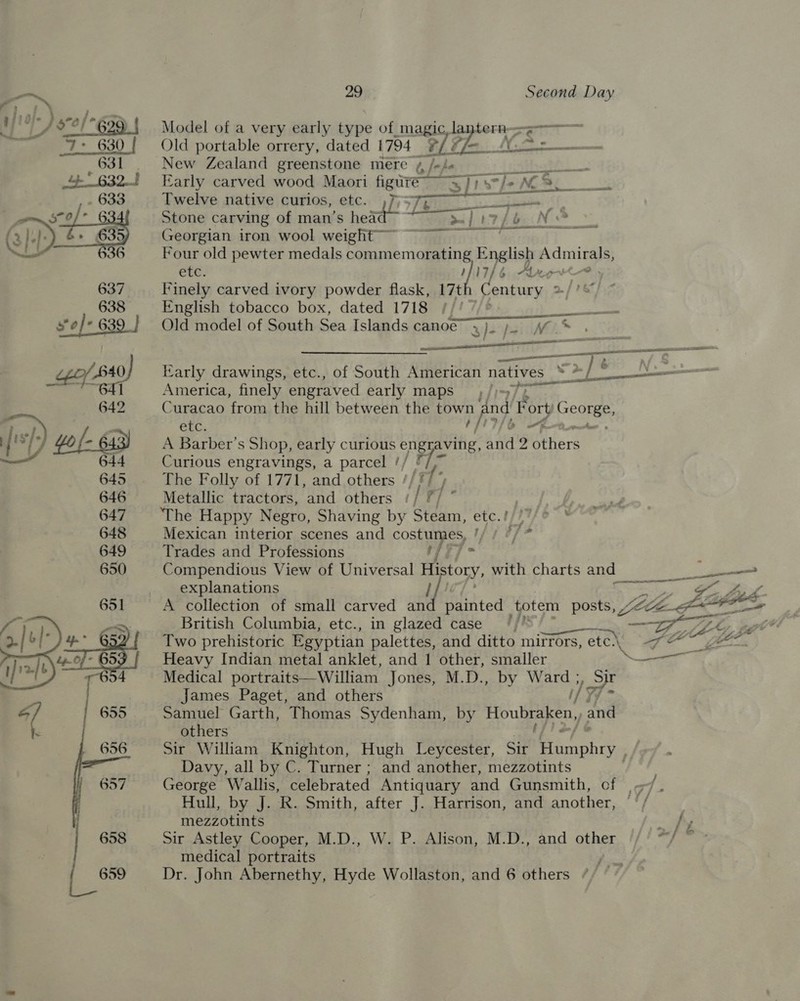 29 Second Day
629 Model of a very early type of magic lantern
630 Old portable orrery, dated 1794
631 New Zealand greenstone mere
632 Early carved wood Maori figure
633 Twelve native curios, etc.
634 Stone carving of man's head
635 Georgian iron wool weight
636 Four old pewter medals commemorating English Admirals,
etc.
637 Finely carved ivory powder flask, 17th Century
638 English tobacco box, dated 1718
639 Old model of South Sea Islands canoe
640 Early drawings, etc., of South American natives
641 America, finely engraved early maps
642 Curacao from the hill between the town and Fort George,
etc.
643 A Barber's Shop, early curious engraving, and 2 others
644 Curious engravings, a parcel
645 The Folly of 1771, and others
646 Metallic tractors, and others
647 The Happy Negro, Shaving by Steam, etc.
648 Mexican interior scenes and costumes,
649 Trades and Professions
650 Compendious View of Universal History, with charts and
explanations
651 A collection of small carved and painted totem posts,
British Columbia, etc., in glazed case
652 Two prehistoric Egyptian palettes, and ditto mirrors, etc.
653 Heavy Indian metal anklet, and 1 other, smaller
654 Medical portraits—William Jones, M.D., by Ward ; Sir
James Paget, and others
655 Samuel Garth, Thomas Sydenham, by Houbraken, and
others
656 Sir William Knighton, Hugh Leycester, Sir Humphry
Davy, all by C. Turner ; and another, mezzotints
657 George Wallis, celebrated Antiquary and Gunsmith, of
Hull, by J. R. Smith, after J. Harrison, and another,
mezzotints
658 Sir Astley Cooper, M.D., W. P. Alison, M.D., and other
medical portraits
659 Dr. John Abernethy, Hyde Wollaston, and 6 others